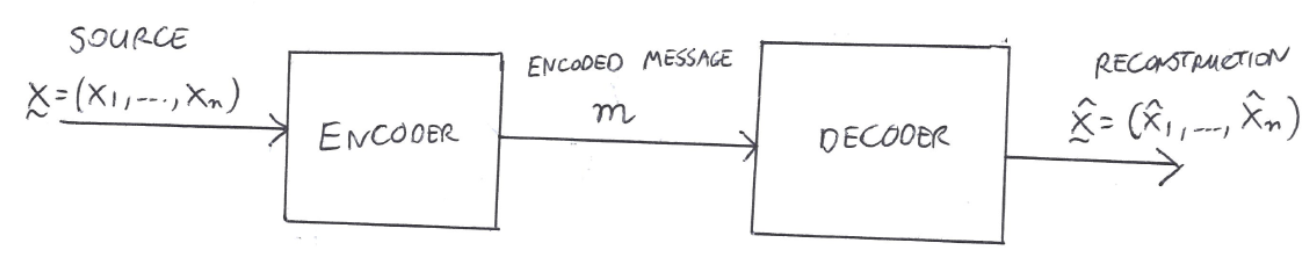 SOURCE
x̰ = (x₁, ..., xₙ)
ENCODER
ENCODED MESSAGE
m
DECODER
RECONSTRUCTION
x̰̂ = (x̂₁, ..., x̂ₙ)